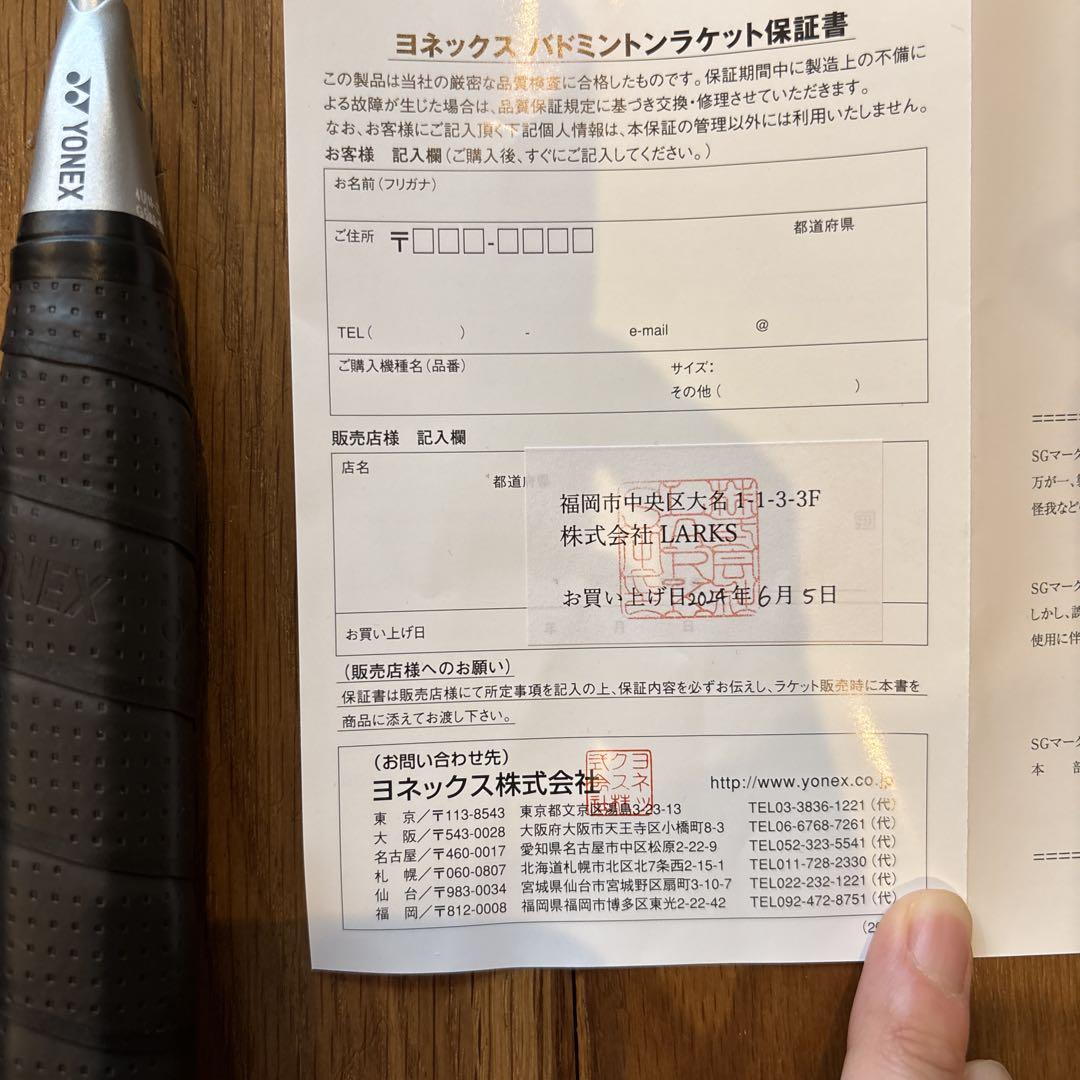 YONEX
ヨネックス バドミントンラケット保証書
この製品は当社の厳密な品質検査に合格したものです。保証期間中に製造上の不備に
よる故障が生じた場合は、品質保証規定に基づき交換・修理させていただきます。
なお、お客様にご記入頂く下記個人情報は、本保証の管理以外には利用いたしません。
お客様 記入欄(ご購入後、すぐにご記入してください。)
お名前(フリガナ)
ご住所 〒□□□-□□□□ 都道府県
TEL( ) - e-mail @
ご購入機種名(品番) サイズ:
その他( )
販売店様 記入欄
店名
都道府県
福岡市中央区大名 1-1-3-3F
株式会社 LARKS
お買い上げ日2024年6月5日
お買い上げ日 年 月 日
(販売店様へのお願い)
保証書は販売店様にて所定事項を記入の上、保証内容を必ずお伝えし、ラケット販売時に本書を
商品に添えてお渡し下さい。
(お問い合わせ先)
ヨネックス株式会社 http://www.yonex.co.jp
東 京/〒113-8543 東京都文京区湯島3-23-13 TEL03-3836-1221(代)
大 阪/〒543-0028 大阪府大阪市天王寺区小橋町8-3 TEL06-6768-7261(代)
名古屋/〒460-0017 愛知県名古屋市中区松原2-22-9 TEL052-323-5541(代)
札 幌/〒060-0807 北海道札幌市北区北7条西2-15-1 TEL011-728-2330(代)
仙 台/〒983-0034 宮城県仙台市宮城野区扇町3-10-7 TEL022-232-1221(代)
福 岡/〒812-0008 福岡県福岡市博多区東光2-22-42 TEL092-472-8751(代)
ヨネックス株式会社
NEX
=====
SGマーク
万が一、
怪我など
SGマーク
しかし、
使用に伴
SGマーク
本 部
====